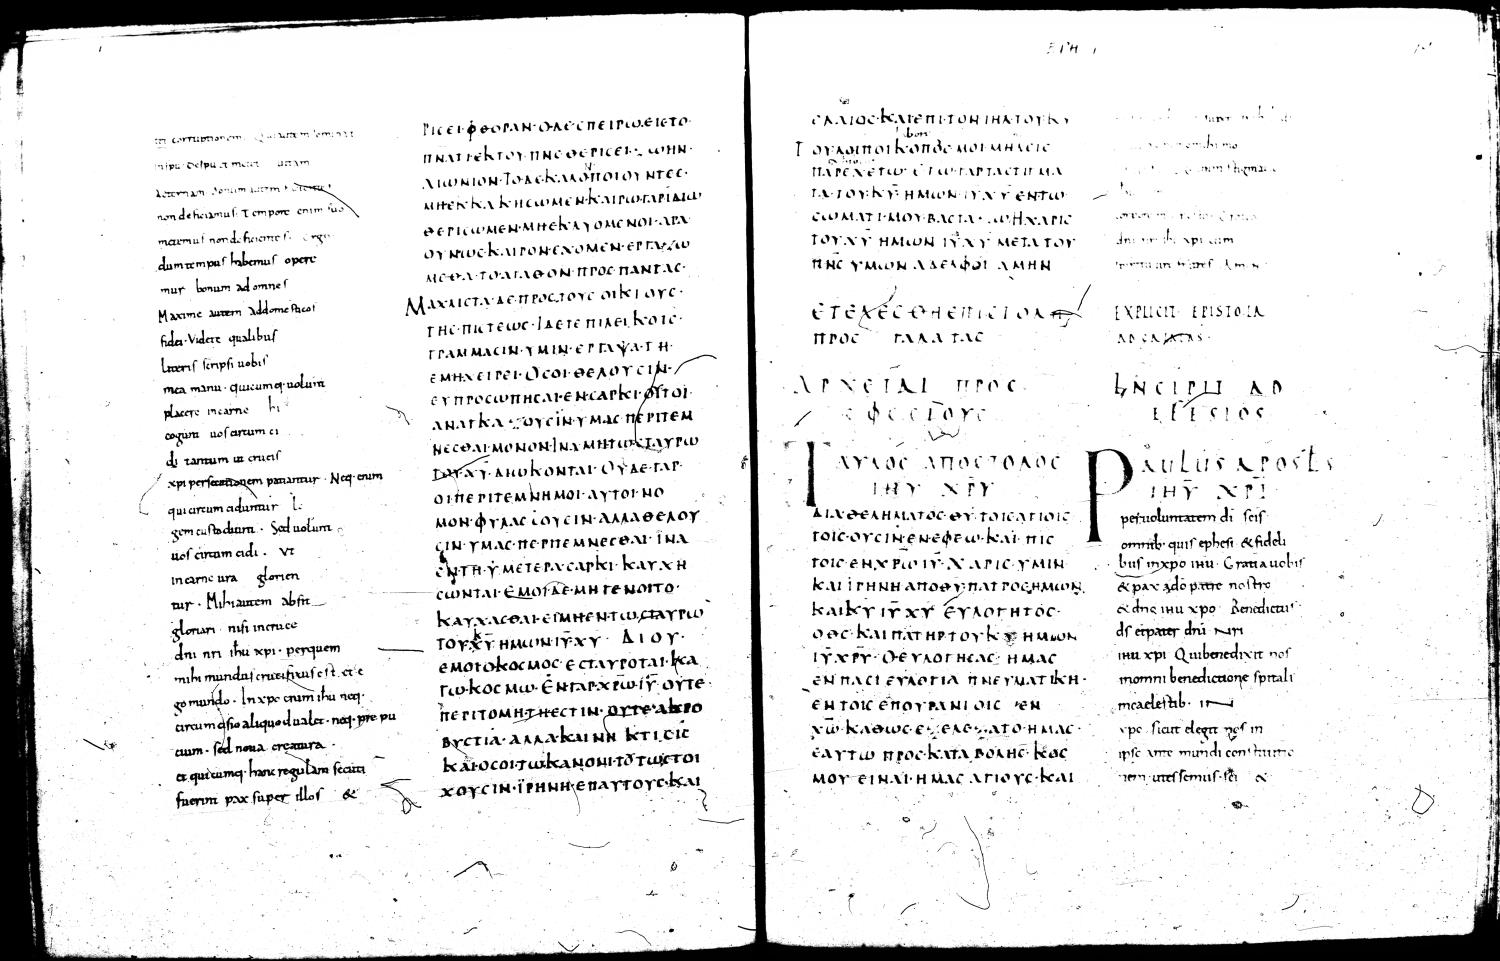 corruptionem. Qui autem seminat
aeternam. Bonum autem
non deficiamus. Tempore enim suo
metemus non deficientes. Ergo
dum tempus habemus opere
mur bonum ad omnes
Maxime autem ad domesticos
fidei. Videte qualibus
litteris scripsi uobis
mea manu. quicumq. uolunt
placere incarne hi
cogunt uos circum ci
di tantum ut crucis
xpi persecutionem patiantur. Neq. enim
qui circumciduntur
gem custodiunt. Sed uolunt
uos circum cidi. Vt
in carne ura glorien
tur. Mihi autem absit
gloriari nisi in cruce
dni nri ihu xpi. per quem
mihi mundus crucifixus est. et e
go mundo. In xpo enim ihu neq.
circumcisio aliquod ualet. neq. pre pu
cium. sed noua creatura.
et quicumq. hanc regulam secuti
fuerint pax super illos &
ΡΙCΕΙ·ΦΘΟΡΑΝ·ΟΔΕ·CΠΕΙΡΩ·ΕΙCΤΟ·
ΠΝΑΤΙ·ΕΚΤΟΥ·ΠΝC·ΘΕΡΙCΕΙ·ΖΩΗΝ·
ΑΙΩΝΙΟΝ·ΤΟΔΕ·ΚΑΛΟΠΟΙΟΥΝΤΕC·
ΜΗΕΚΚΑΚΗCΩΜΕΝ·ΚΑΙΡΩ·ΓΑΡΙΔΙΩ
ΘΕΡΙCΩΜΕΝ·ΜΗΕΚΛΥΟΜΕΝΟΙ·ΑΡΑ·
ΟΥΝΩC·ΚΑΙΡΟΝ·ΕΧΟΜΕΝ·ΕΡΓΑΖΩ
ΜΕΘΑ·ΤΟ·ΑΓΑΘΟΝ·ΠΡΟC·ΠΑΝΤΑC·
ΜΑΛΙCΤΑ·ΔΕ·ΠΡΟC·ΤΟΥC ΟΙΚΙΟΥC·
ΤΗC·ΠΙCΤΕΩC·ΙΔΕΤΕ ΠΙΛΕΙΚΟΙC·
ΓΡΑΜΜΑCΙΝ·ΥΜΙΝ·ΕΓΡΑΨΑ·ΤΗ·
ΕΜΗ ΧΕΙΡΕΙ·ΟCΟΙ·ΘΕΛΟΥCΙΝ·
ΕΥΠΡΟCΩΠΗCΑΙ·ΕΝCΑΡΚΙ·ΟΥΤΟΙ·
ΑΝΑΓΚΑΖΟΥCΙΝ·ΥΜΑC·ΠΕΡΙΤΕΜ
ΝΕCΘΑΙ·ΜΟΝΟΝ·ΙΝΑ ΜΗΤΩ·CΤΑΥΡΩ
ΤΟΥ·ΧΥ·ΔΙΩΚΟΝΤΑΙ·ΟΥΔΕ·ΓΑΡ·
ΟΙΠΕΡΙΤΕΜΝΗΜΟΙ·ΑΥΤΟΙ·ΝΟ
ΜΟΝ·ΦΥΛΑCCΟΥCΙΝ·ΑΛΛΑ ΘΕΛΟΥ
CΙΝ·ΥΜΑC·ΠΕΡΙΤΕΜΝΕCΘΑΙ·ΙΝΑ
ΕΝΤΗ·ΥΜΕΤΕΡΑ·CΑΡΚΙ·ΚΑΥΧΗ
CΩΝΤΑΙ·ΕΜΟΙ·ΔΕ·ΜΗ ΓΕΝΟΙΤΟ·
ΚΑΥΧΑCΘΑΙ·ΕΙΜΗ·ΕΝΤΩ·CΤΑΥΡΩ
ΤΟΥ·ΚΥ ΗΜΩΝ·ΙΥ·ΧΥ· ΔΙΟΥ·
ΕΜΟΙΟΚΟCΜΟC·ΕCΤΑΥΡΟΤΑΙ·ΚΑ
ΓΩ·ΚΟCΜΩ·ΕΝΓΑΡ·ΧΡΩ·ΙΥ ΟΥΤΕ·
ΠΕΡΙΤΟΜΗ·ΤΗΕCΤΙΝ·ΟΥΤΕ·ΑΚΡΟ
ΒΥCΤΙΑ·ΑΛΛΑ·ΚΑΙΝΗ ΚΤΙCΙC
ΚΑΙ·ΟCΟΙ·ΤΩ·ΚΑΝΟΝΙ·ΤΟΥΤΩ·CΤΟΙ
ΧΟΥCΙΝ·ΙΡΗΝΗ·ΕΠΑΥΤΟΥC·ΚΑΙ
ΕΛΑΙΟC·ΚΑΙ ΕΠΙ·ΤΟΝ ΙΗΛ·ΤΟΥ ΚΥ
ΤΟΥ ΛΟΙΠΟΙ ΚΟΠΟC ΜΟΙ·ΜΗΔΕΙC
ΠΑΡΕΧΕΤΩ·ΕΓΩ·ΓΑΡ ΤΑCΤΙΓΜΑ
ΤΑ·ΤΟΥ·ΚΥ ΗΜΩΝ·ΙΥ ΧΥ ΕΝΤΩ·
CΩΜΑΤΙ·ΜΟΥ·ΒΑCΤΑΖΩ Η ΧΑΡΙC
ΤΟΥ ΚΥ ΗΜΩΝ ΙΥ ΧΥ ΜΕΤΑ ΤΟΥ
ΠΝC ΥΜΩΝ ΑΔΕΛΦΟΙ ΑΜΗΝ
ΕΤΕΛΕCΘΗ ΕΠΙCΤΟΛΗ
ΠΡΟC ΓΑΛΑΤΑC
ΑΡΧΕΤΑΙ ΠΡΟC
ΕΦΕCΙΟΥC
ΠΑΥΛΟC ΑΠΟCΤΟΛΟC
ΙΗΥ ΧΡΥ
ΔΙΑ·ΘΕΛΗΜΑΤΟC·ΘΥ·ΤΟΙC·ΑΓΙΟΙC
ΤΟΙC·ΟΥCΙΝ·ΕΝΕΦΕCΩ·ΚΑΙ·ΠΙC
ΤΟΙC·ΕΝ·ΧΡΩ ΙΥ· ΧΑΡΙC·ΥΜΙΝ
ΚΑΙ ΙΡΗΝΗ ΑΠΟ ΘΥ ΠΑΤΡΟC·ΗΜΩΝ
ΚΑΙ ΚΥ ΙΥ ΧΥ ΕΥΛΟΓΗΤΟC·
Ο ΘC·ΚΑΙ ΠΑΤΗΡ·ΤΟΥ ΚΥ ΗΜΩΝ
ΙΥ ΧΡΥ· Ο ΕΥΛΟΓΗCΑC· ΗΜΑC
ΕΝ ΠΑCΙ ΕΥΛΟΓΙΑ ΠΝΕΥΜΑΤΙΚΗ·
ΕΝ ΤΟΙC ΕΠΟΥΡΑΝΙΟΙC ΕΝ
ΧΩ·ΚΑΘΩC·ΕΞΕΛΕΞΑΤΟ·ΗΜΑC·
ΕΑΥΤΩ ΠΡΟC·ΚΑΤΑΒΟΛΗC·ΚΟC
ΜΟΥ ΕΙΝΑΙ·ΗΜΑC ΑΓΙΟΥC·ΚΑΙ
EXPLICIT EPISTOLA
AD GALATAS·
INCIPIT AD
EFESIOS
PAULUS APOSTLS
IHY XPI
per uoluntatem di scis
omnib. qui s ephesi & fideli
bus in xpo ihu. Gratia uobis
& pax a do patre nostro
& dno ihu xpo Benedictus
ds et pater dni nri
ihu xpi Qui benedixit nos
in omni benedictione spitali
in caelestib. in
xpo. sicut elegit nos in
ipso ante mundi constitutio
nem ut essemus. sci &